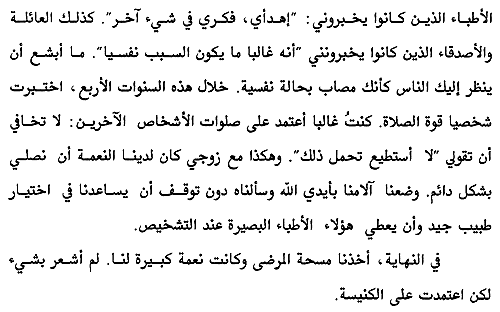 الأطباء الذين كانوا يخبروني: "إهدأي، فكري في شيء آخر". كذلك العائلة
والأصدقاء الذين كانوا يخبرونني "أنه غالبا ما يكون السبب نفسيا". ما أبشع أن
ينظر إليك الناس كأنك مصاب بحالة نفسية. خلال هذه السنوات الأربع، اختبرت
شخصيا قوة الصلاة. كنتُ غالبا أعتمد على صلوات الأشخاص الآخرين: لا تخافي
أن تقولي "لا أستطيع تحمل ذلك". وهكذا مع زوجي كان لدينا النعمة أن نصلي
بشكل دائم. وضعنا آلامنا بأيدي الله وسألناه دون توقف أن يساعدنا في اختيار
طبيب جيد وأن يعطي هؤلاء الأطباء البصيرة عند التشخيص.
في النهاية، أخذنا مسحة المرضى وكانت نعمة كبيرة لنا. لم أشعر بشيء
لكن اعتمدت على الكنيسة.